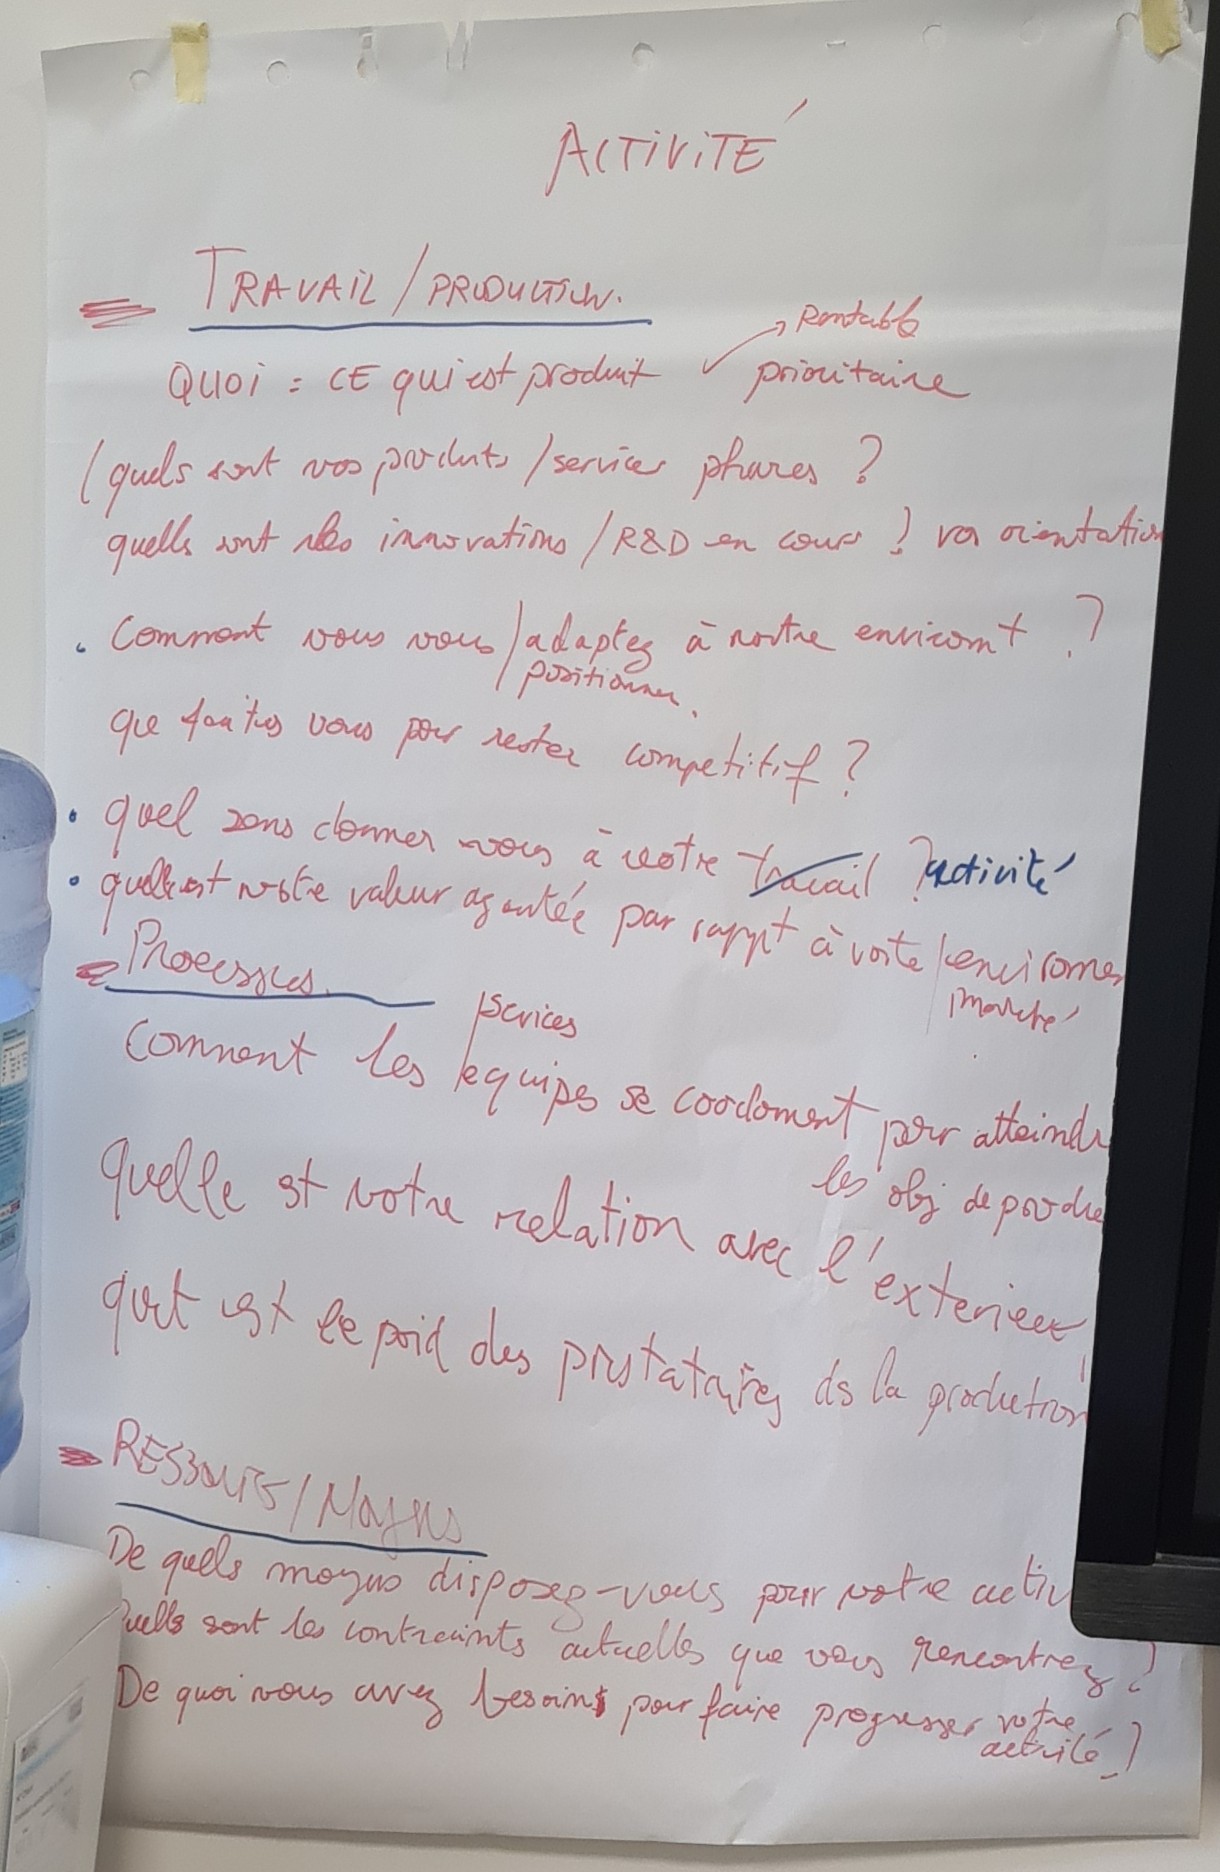 ACTIVITÉ
TRAVAIL / PRODUCTION.
Rentable
QUOI = CE qui est produit prioritaire
(quels sont vos produits / services phares ?
quelles sont les innovations / R&D en cours ? vos orientation
. Comment vous vous / adaptez à notre environt ?
positionner.
que faites vous pour rester competitif ?
• quel sens donner vous à votre travail ? activité
• quelle est votre valeur ajoutée par rappt à votre / environnem
marché
Processus.
services
Comment les equipes se coordonnent pour atteindr
les obj de produc
quelle est votre relation avec l'exterieur
quel est le poid des prestataires ds la production
RESSOURCES / Moyens
De quels moyens disposez-vous pour votre activ
Quelles sont les contraints actuelles que vous rencontrez ?
De quoi vous avez besoins pour faire progresser votre
activité ?